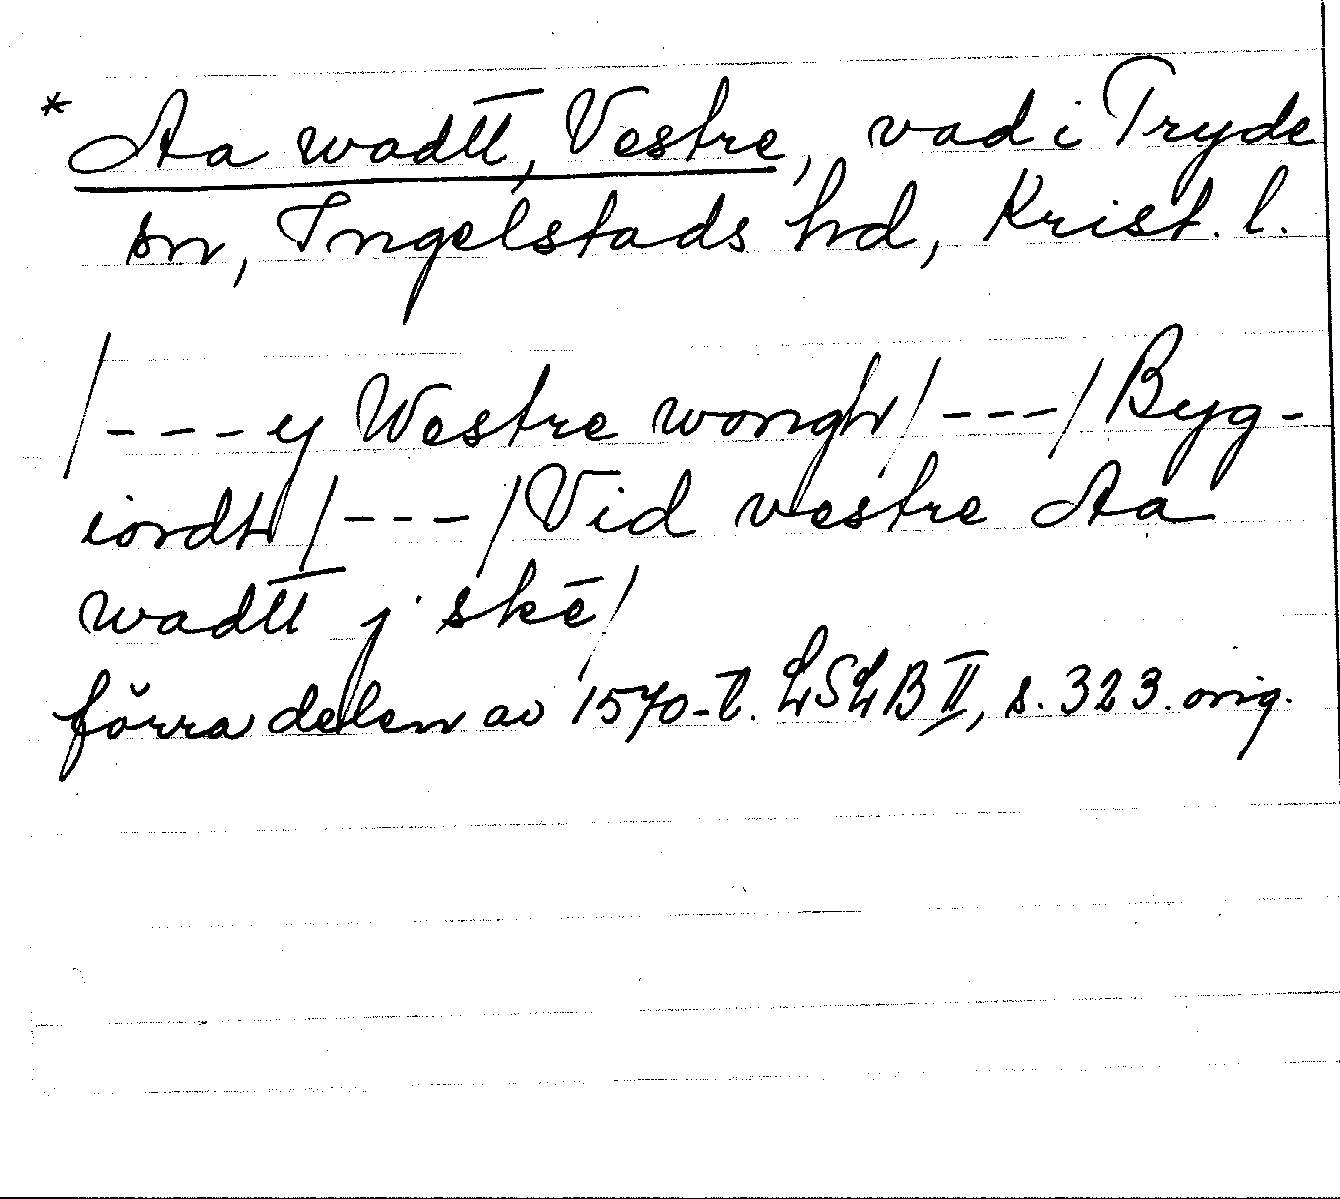 * Aa wadtt̄, Vestre, vad i Tryde
sn, Ingelstads hd, Krist. l.
/---y Westre wongh/---/Byg-
iordh/---/Vid vestre Aa
wadtt̄ j skē/
förra delen av 1570-t. LSLB II, s. 323. orig.